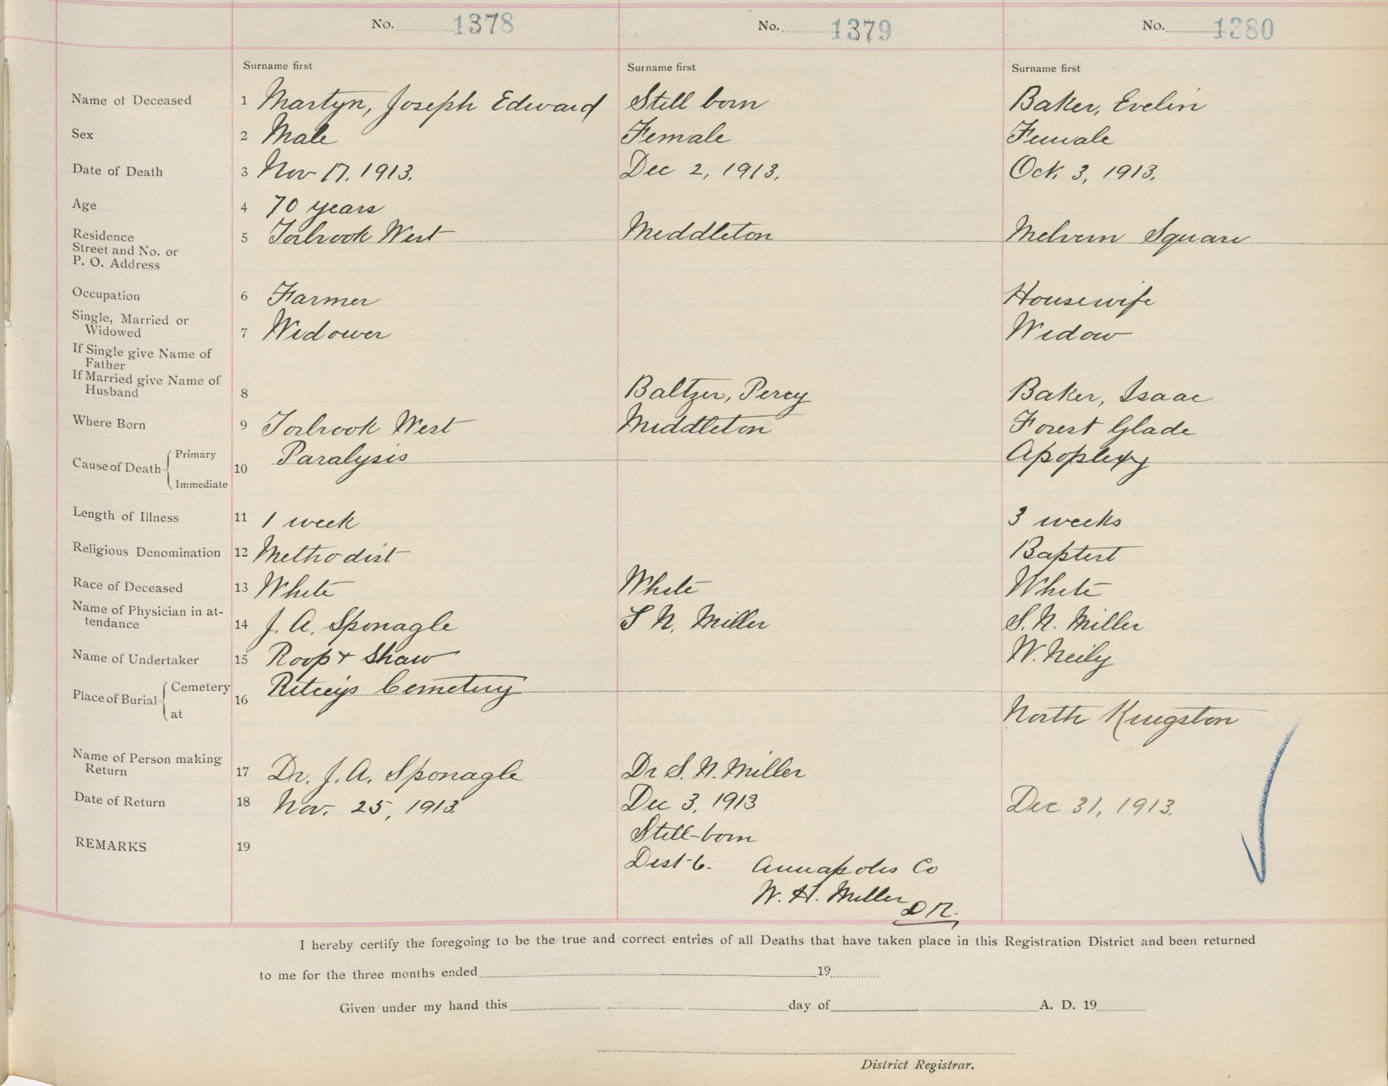 No. 1378 No. 1379 No. 1380
Surname first Surname first Surname first
Name of Deceased 1 Martyn, Joseph Edward Still born Baker, Evelin
Sex 2 Male Female Female
Date of Death 3 Nov 17, 1913. Dec 2, 1913. Oct. 3, 1913.
Age 4 70 years
Residence 5 Torbrook West Middleton Melvern Square
Street and No. or
P. O. Address
Occupation 6 Farmer Housewife
Single, Married or
Widowed 7 Widower Widow
If Single give Name of
Father
If Married give Name of
Husband 8 Baltzer, Percy Baker, Isaac
Where Born 9 Torbrook West Middleton Forest Glade
Cause of Death Primary 10 Paralysis Apoplexy
Immediate
Length of Illness 11 1 week 3 weeks
Religious Denomination 12 Methodist Baptist
Race of Deceased 13 White White White
Name of Physician in at-
tendance 14 J. A. Sponagle S N. Miller S. N. Miller
Name of Undertaker 15 Roop & Shaw W. Neily
Place of Burial Cemetery 16 Cemetery
at North Kingston
Name of Person making
Return 17 Dr. J. A. Sponagle Dr S. N. Miller
Date of Return 18 Nov. 25, 1913. Dec 3, 1913 Dec 31, 1913.
REMARKS 19 Still-born
Dist-6. Annapolis Co
W. H. Miller
D R.
I hereby certify the foregoing to be the true and correct entries of all Deaths that have taken place in this Registration District and been returned
to me for the three months ended 19
Given under my hand this day of A. D. 19
District Registrar.